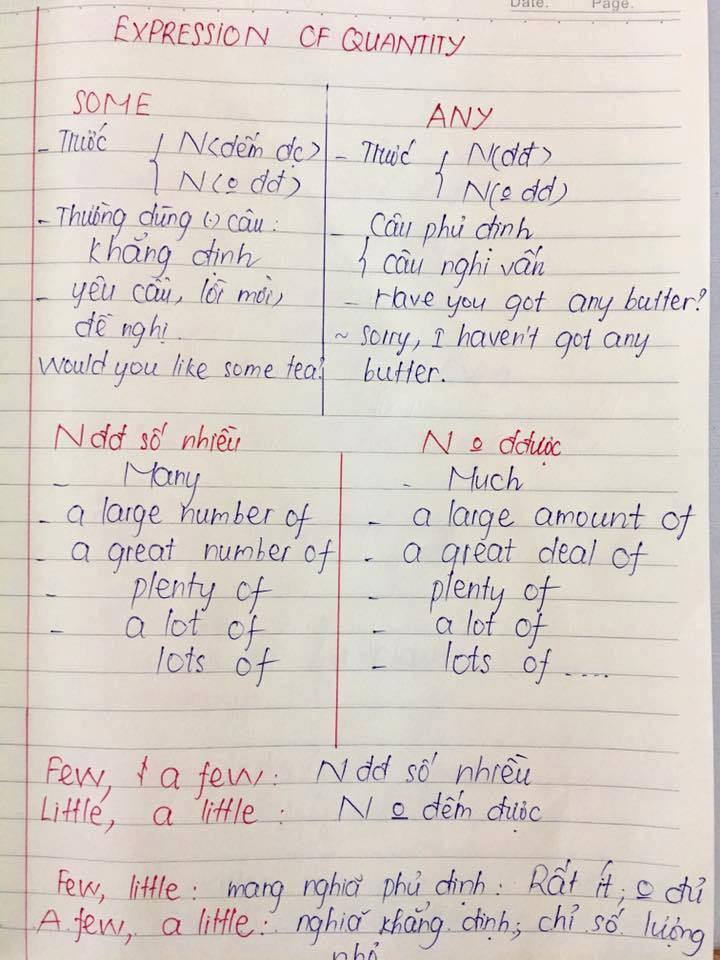 Date. Page.
EXPRESSION OF QUANTITY
SOME
- Trước { N(đếm đc)
N(o đđ)
- Thường dùng (-) câu:
khẳng định
- yêu cầu, lời mời,
đề nghị.
Would you like some tea?
ANY
- Trước { N(đđ)
N(o đđ)
- Câu phủ định
{ câu nghi vấn
- Have you got any butter?
~ Sorry, I haven't got any
butter.
N đđ số nhiều
- Many
- a large number of
- a great number of
- plenty of
- a lot of
lots of
N o đđược
- Much
- a large amount of
- a great deal of
- plenty of
- a lot of
- lots of ....
Few, a few: N đđ số nhiều
Little, a little: N o đếm được
Few, little: mang nghĩa phủ định: Rất ít, o đủ
A few, a little: nghĩa khẳng định; chỉ số lượng
nhỏ